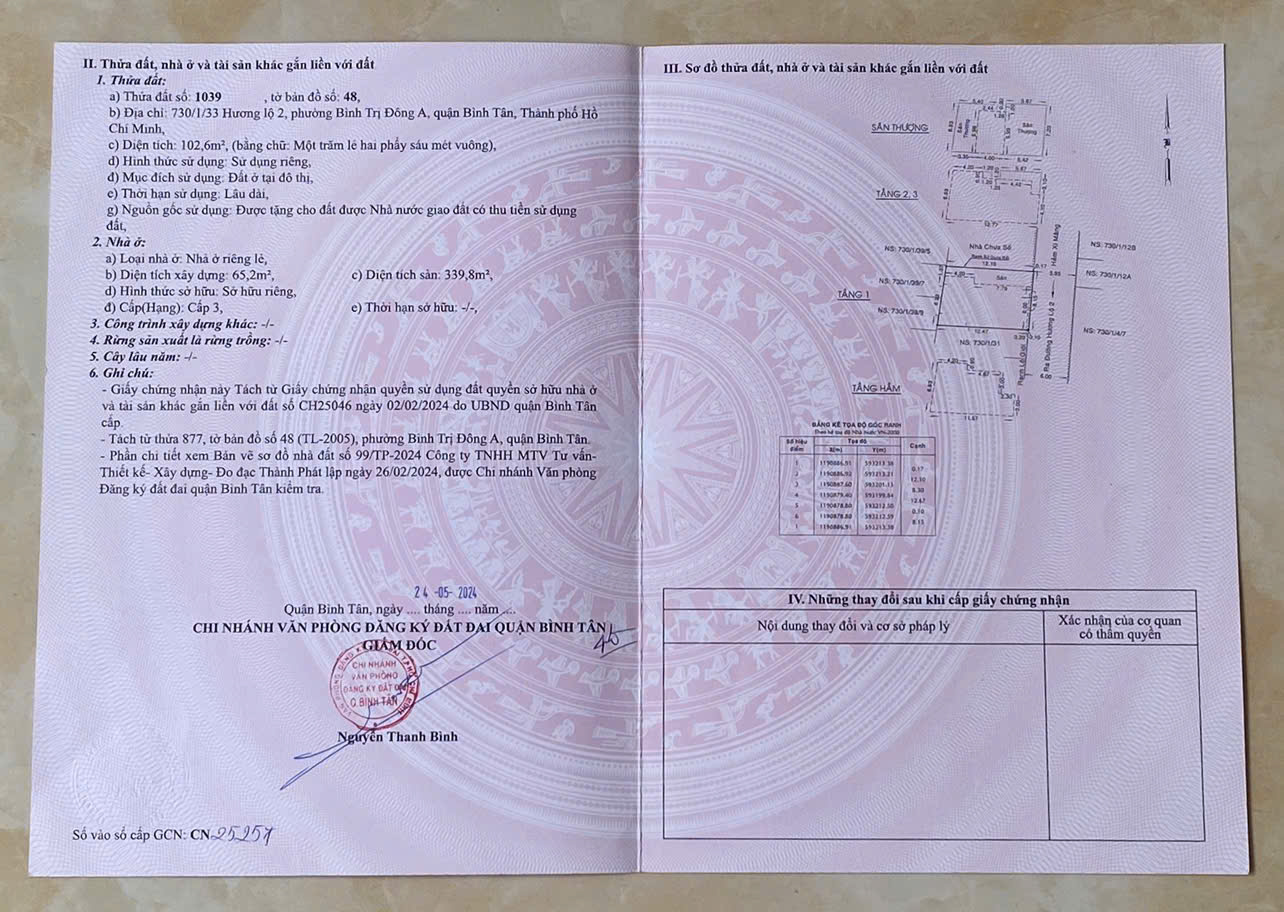 II. Thửa đất, nhà ở và tài sản khác gắn liền với đất
1. Thửa đất:
a) Thửa đất số: 1039 , tờ bản đồ số: 48,
b) Địa chỉ: 730/1/33 Hương lộ 2, phường Bình Trị Đông A, quận Bình Tân, Thành phố Hồ
Chí Minh,
c) Diện tích: 102,6m², (bằng chữ: Một trăm lẻ hai phẩy sáu mét vuông),
d) Hình thức sử dụng: Sử dụng riêng,
đ) Mục đích sử dụng: Đất ở tại đô thị,
e) Thời hạn sử dụng: Lâu dài,
g) Nguồn gốc sử dụng: Được tặng cho đất được Nhà nước giao đất có thu tiền sử dụng
đất,
2. Nhà ở:
a) Loại nhà ở: Nhà ở riêng lẻ,
b) Diện tích xây dựng: 65,2m², c) Diện tích sàn: 339,8m²,
d) Hình thức sở hữu: Sở hữu riêng,
đ) Cấp(Hạng): Cấp 3, e) Thời hạn sở hữu: -/-,
3. Công trình xây dựng khác: -/-
4. Rừng sản xuất là rừng trồng: -/-
5. Cây lâu năm: -/-
6. Ghi chú:
- Giấy chứng nhận này Tách từ Giấy chứng nhận quyền sử dụng đất quyền sở hữu nhà ở
và tài sản khác gắn liền với đất số CH25046 ngày 02/02/2024 do UBND quận Bình Tân
cấp.
- Tách từ thửa 877, tờ bản đồ số 48 (TL-2005), phường Bình Trị Đông A, quận Bình Tân.
- Phần chi tiết xem Bản vẽ sơ đồ nhà đất số 99/TP-2024 Công ty TNHH MTV Tư vấn-
Thiết kế- Xây dựng- Đo đạc Thành Phát lập ngày 26/02/2024, được Chi nhánh Văn phòng
Đăng ký đất đai quận Bình Tân kiểm tra.
24 -05- 2024
Quận Bình Tân, ngày .... tháng .... năm ....
CHI NHÁNH VĂN PHÒNG ĐĂNG KÝ ĐẤT ĐAI QUẬN BÌNH TÂN
GIÁM ĐỐC
CHI NHÁNH
VĂN PHÒNG
ĐĂNG KÝ ĐẤT ĐAI
Q.BÌNH TÂN
Nguyễn Thanh Bình
Số vào sổ cấp GCN: CN 25257
III. Sơ đồ thửa đất, nhà ở và tài sản khác gắn liền với đất
SÂN THƯỢNG
Sân
Thượng
Sân
Thượng
TẦNG 2, 3
12.77
NS: 730/1/39/5
Nhà Chưa Số
12.10
NS: 730/1/12B
NS: 730/1/39/7
Sân
NS: 730/1/12A
TẦNG 1
NS: 730/1/39/9
12.47
NS: 730/1/31
NS: 730/1/4/7
Hẻm Xi Măng
Ra Đường Hương Lộ 2
Ranh Lộ Giới
6.00
TẦNG HẦM
11.67
BẢNG KÊ TỌA ĐỘ GÓC RANH
Theo hệ tọa độ Nhà nước VN-2000
Số hiệu điểm Tọa độ Cạnh
X(m) Y(m)
1 1190886.91 593213.38
0.17
2 1190886.92 593213.21
12.10
3 1190887.60 593201.13
8.30
4 1190879.40 593199.84
12.67
5 1190878.80 593212.50
0.10
6 1190878.80 593212.59
8.15
1 1190886.91 593213.38
IV. Những thay đổi sau khi cấp giấy chứng nhận
Nội dung thay đổi và cơ sở pháp lý
Xác nhận của cơ quan
có thẩm quyền